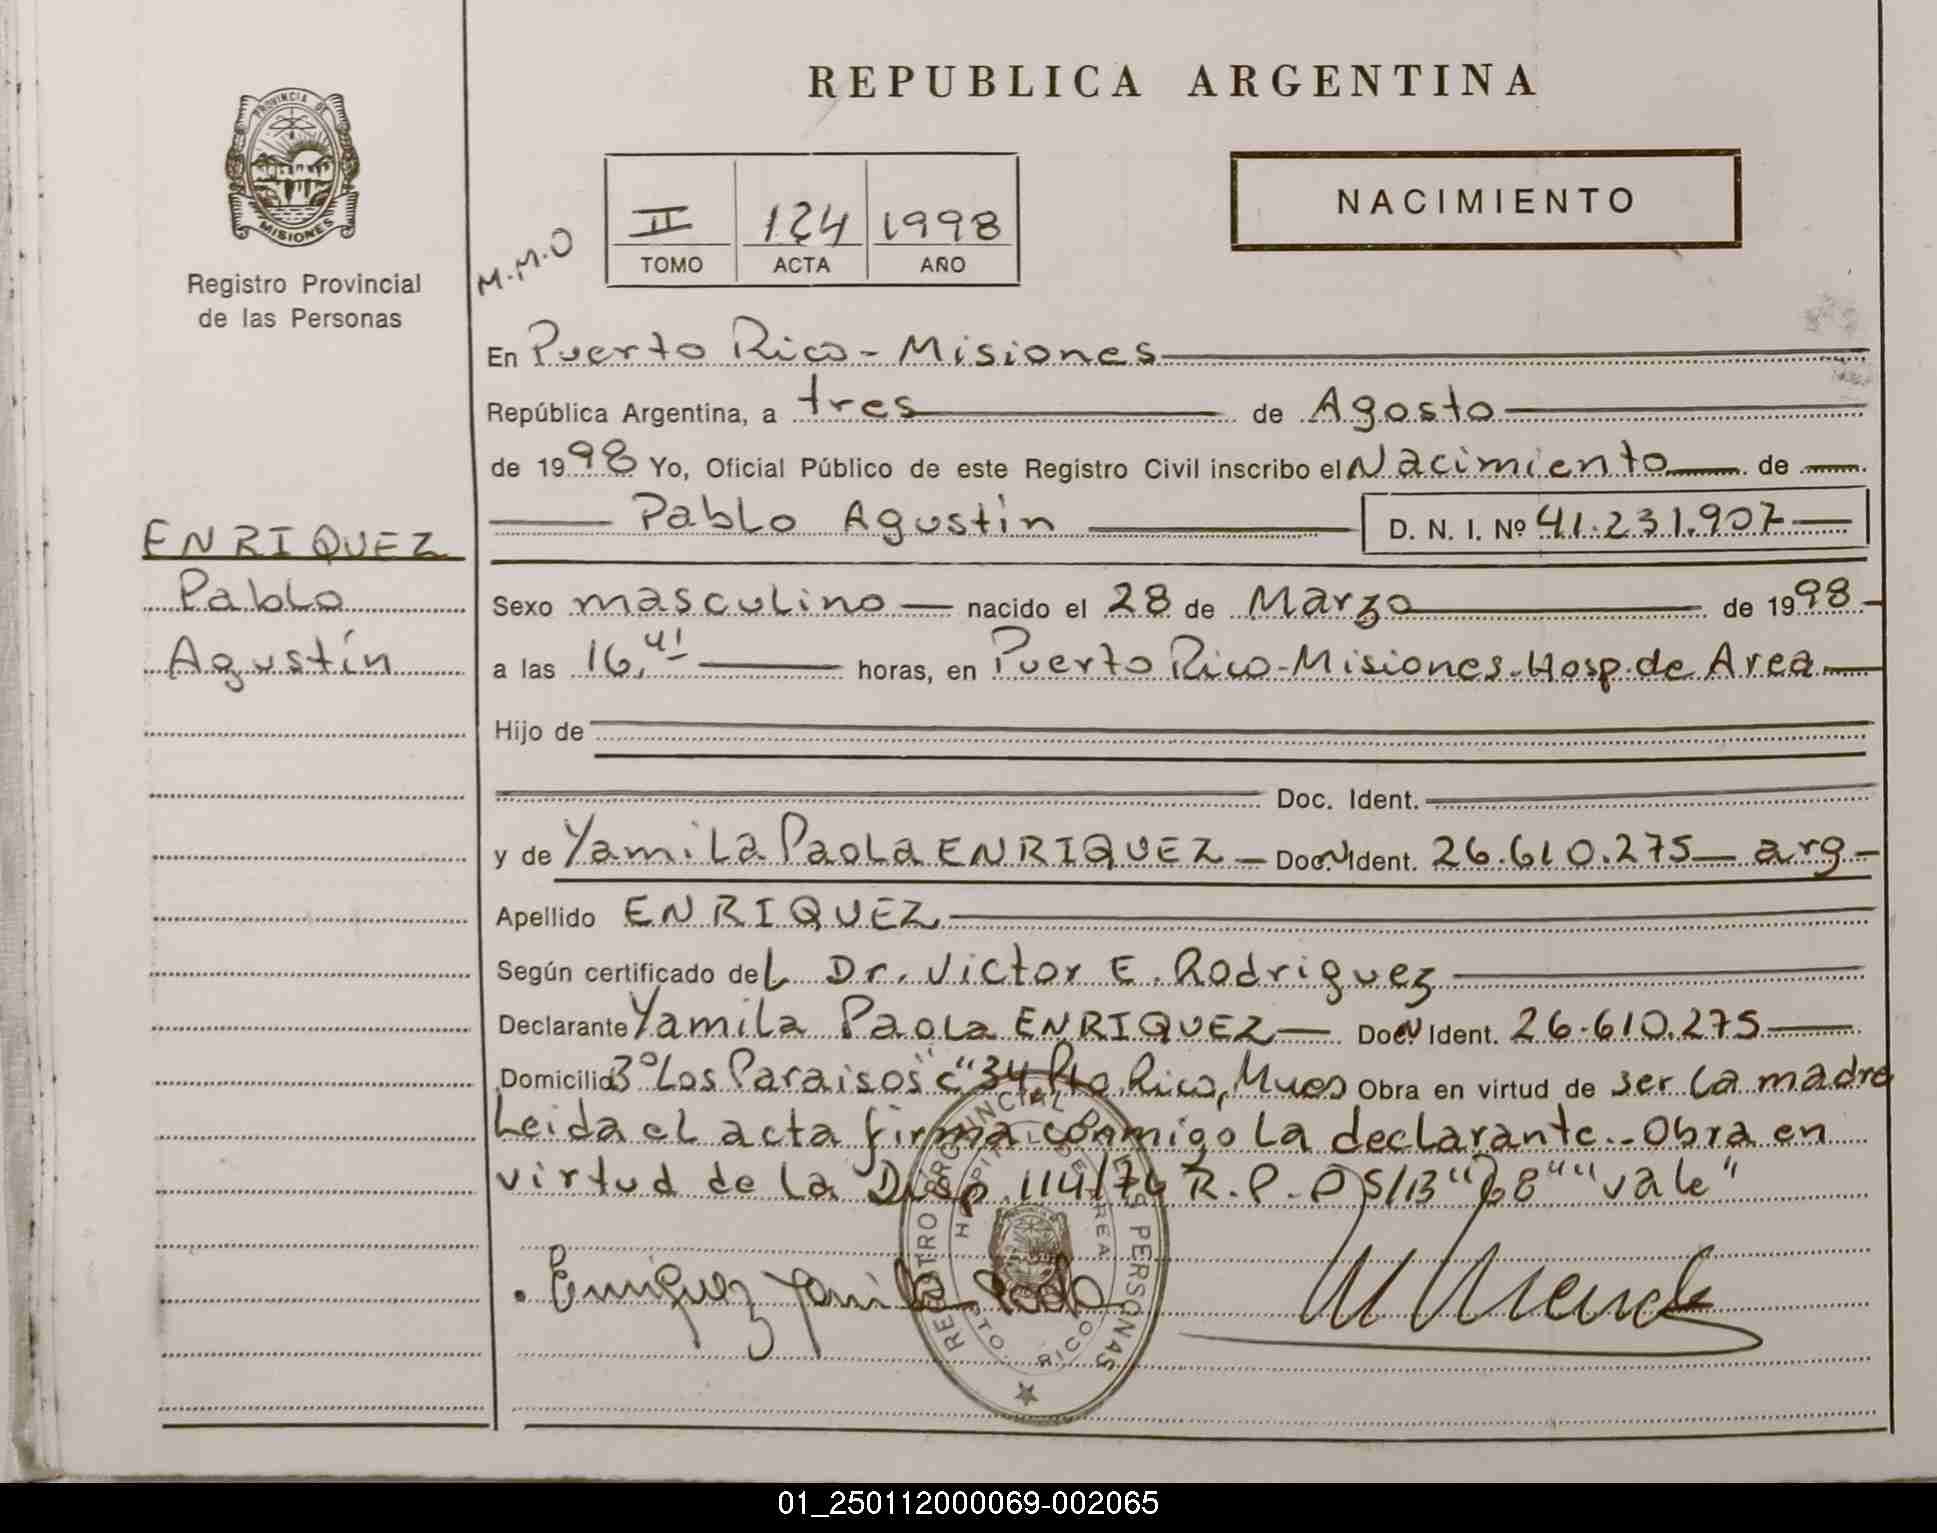 REPUBLICA ARGENTINA
PROVINCIA DE
MISIONES
Registro Provincial
de las Personas
M.M.O
II 124 1998
TOMO ACTA AÑO
NACIMIENTO
En Puerto Rico - Misiones
República Argentina, a tres de Agosto
de 1998 Yo, Oficial Público de este Registro Civil inscribo el Nacimiento de
Pablo Agustín D. N. I. Nº 41.231.907
ENRIQUEZ
Pablo
Agustín
Sexo masculino nacido el 28 de Marzo de 1998
a las 16,41 horas, en Puerto Rico-Misiones-Hosp. de Area
Hijo de
Doc. Ident.
y de Yamila Paola ENRIQUEZ Doc. N Ident. 26.610.275 arg
Apellido ENRIQUEZ
Según certificado del Dr. Victor E. Rodriguez
Declarante Yamila Paola ENRIQUEZ Doc. N Ident. 26.610.275
Domicilio Bº Los Paraisos "c" 34 Pto. Rico, Obra en virtud de ser la madre
Leida el acta firma conmigo la declarante.- Obra en
virtud de la Disp. 114/76 R.P. "vale"
Enriquez Yamila Paola
REGISTRO PROVINCIAL DE LAS PERSONAS
HOSPITAL DE AREA
PTO. RICO
01_250112000069-002065